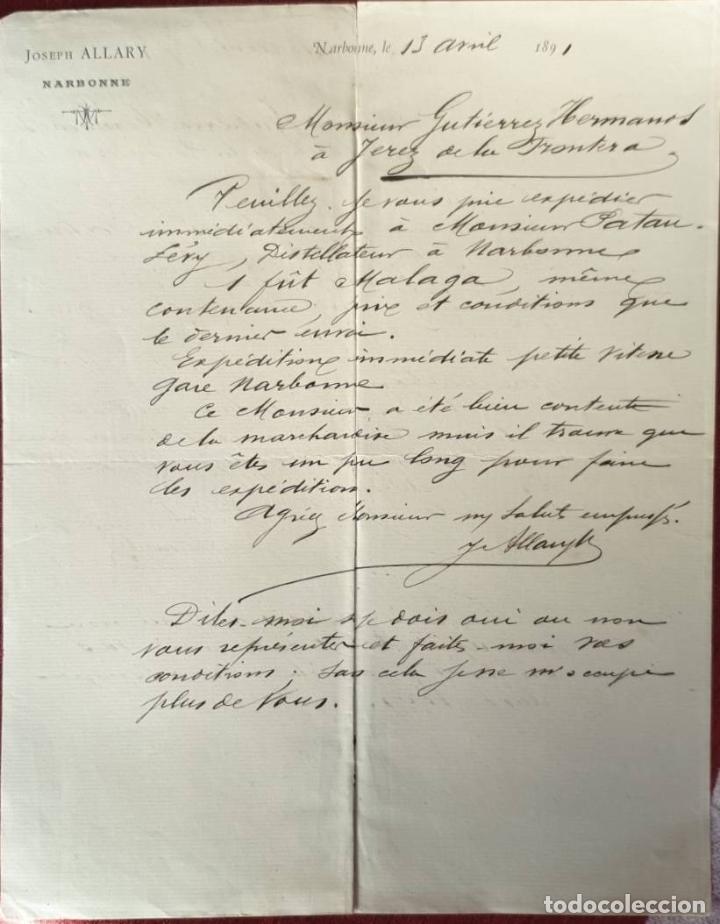 Joseph ALLARY
NARBONNE
Narbonne, le 13 avril 1891
Monsieur Gutierrez Hermanos
à Jerez de la Frontera
Veuillez je vous prie expédier
immédiatement à Monsieur Patau-
Lévy, Distillateur à Narbonne
1 fût Malaga, même
contenance, prix et conditions que
le dernier envoi.
Expédition immédiate petite vitesse
gare Narbonne
Ce Monsieur a été bien content
de la marchandise mais il trouve que
vous êtes un peu long pour faire
les expédition.
Agréez Monsieur mes saluts empressés.
J. Allary
Dites-moi si je dois oui ou non
vous représenter et faites-moi vos
conditions, sans cela je ne m'occupe
plus de Vous.
todocoleccion